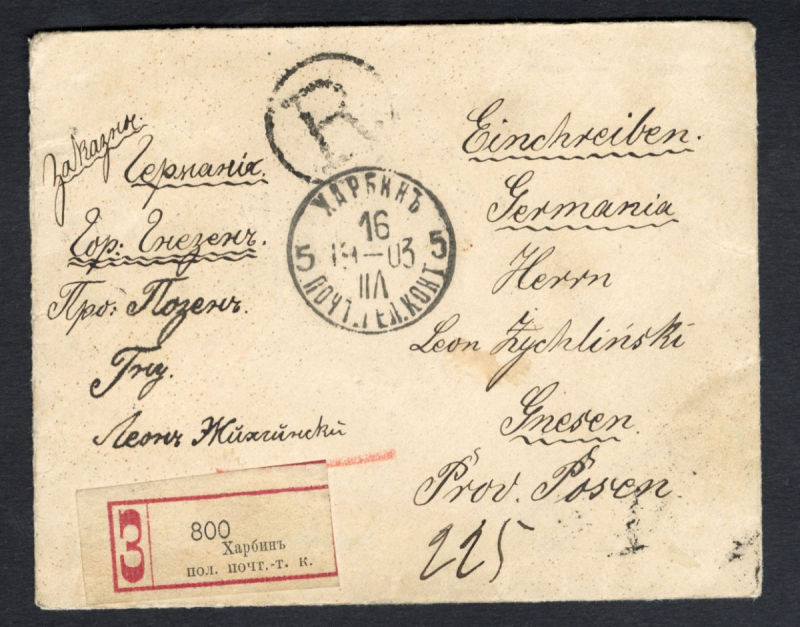 Заказн.
Германія
Гор: Гнезенъ.
Про: Позенъ.
Гну.
Леонъ Жихлински
R
ХАРБИНЪ
16
5 19—03 5
II
ПОЧТ.ТЕЛ.КОНТ
Einchreiben.
Germania
Herrn
Leon Zychliński
Gnesen
Prov. Posen
225
З
800
Харбинъ
пол. почт.-т. к.